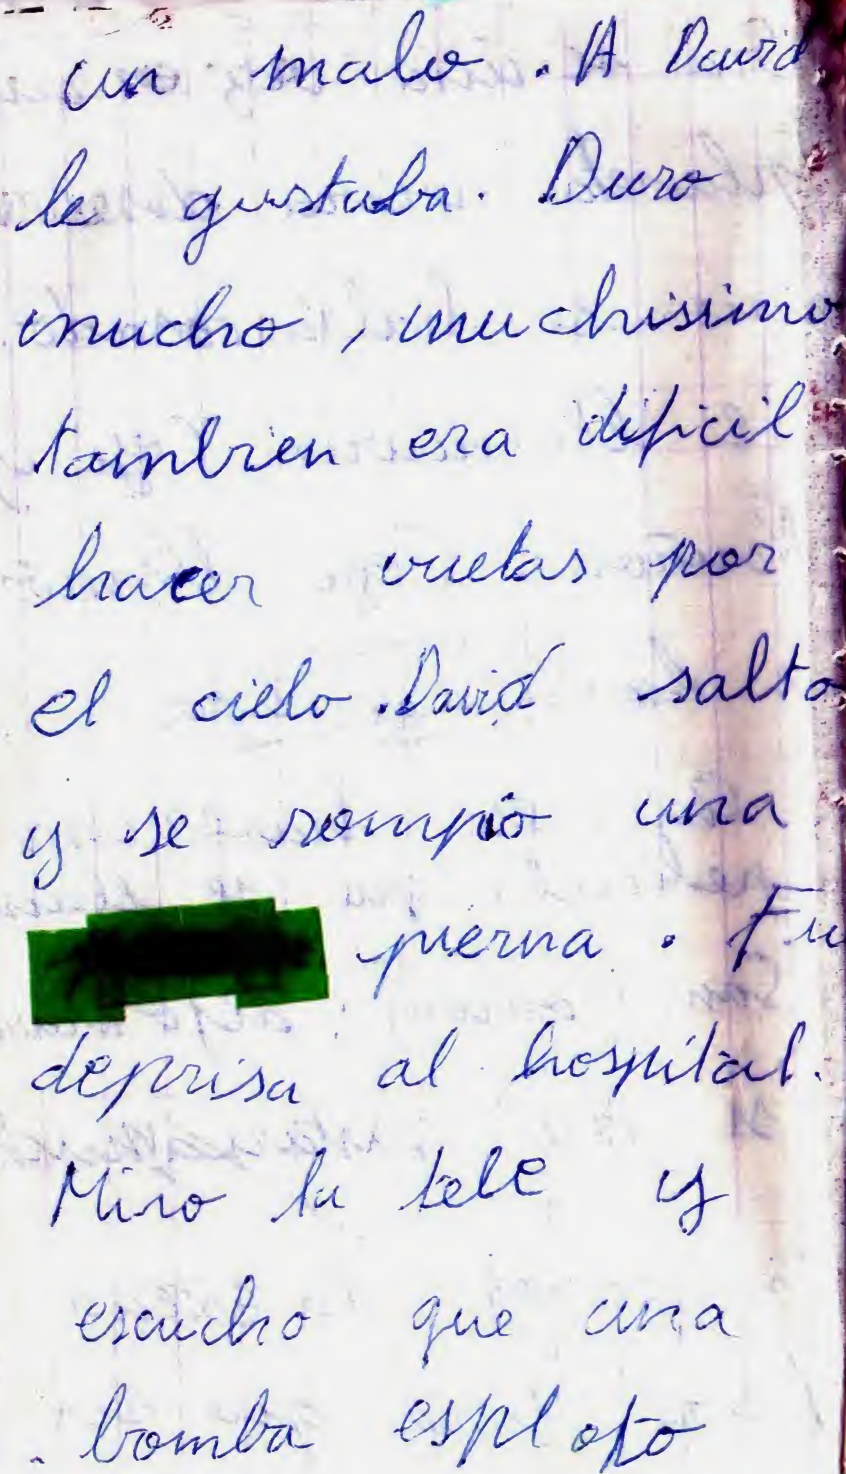 un malo. A David
le gustaba. Duro
mucho, muchisimo
tambien era dificil
hacer vueltas por
el cielo. David salto
y se rompio una
pierna. Fu
deprisa al hospital.
Miro la tele y
escucho que una
bomba esploto